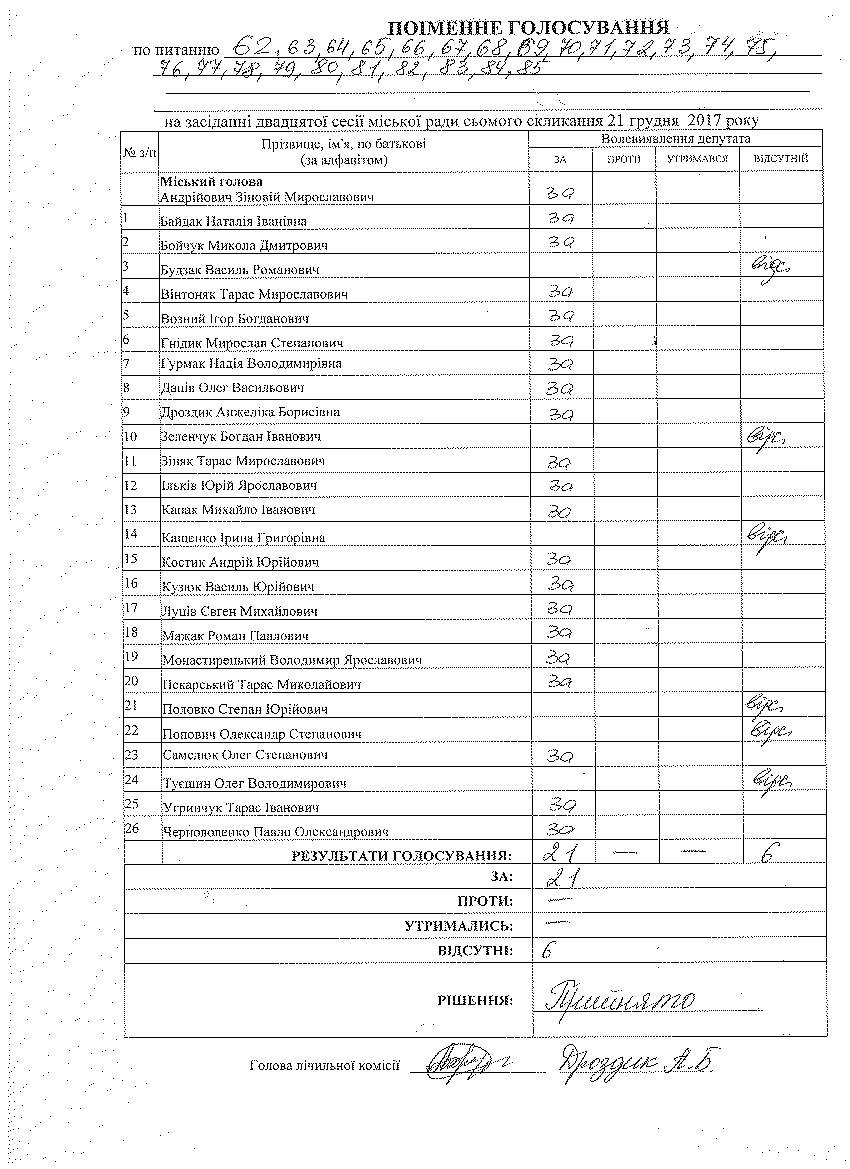 ПОІМЕННЕ ГОЛОСУВАННЯ
по питанню 62, 63, 64, 65, 66, 67, 68, 69, 70, 71, 72, 73, 74, 75,
76, 77, 78, 79, 80, 81, 82, 83, 84, 85
на засіданні двадцятої сесії міської ради сьомого скликання 21 грудня 2017 року
№ з/п Прізвище, ім'я, по батькові (за алфавітом) Волевиявлення депутата
ЗА ПРОТИ УТРИМАВСЯ ВІДСУТНІЙ
Міський голова
Андрійович Зіновій Мирославович за
1 Байдак Наталія Іванівна за
2 Бойчук Микола Дмитрович за
3 Будзак Василь Романович відс.
4 Вінтоняк Тарас Мирославович за
5 Возний Ігор Богданович за
6 Гнідик Мирослав Степанович за
7 Гурмак Надія Володимирівна за
8 Даців Олег Васильович за
9 Дроздик Анжеліка Борисівна за
10 Зеленчук Богдан Іванович відс.
11 Зіняк Тарас Мирославович за
12 Ільків Юрій Ярославович за
13 Капак Михайло Іванович за
14 Кащенко Ірина Григорівна відс.
15 Костик Андрій Юрійович за
16 Кузюк Василь Юрійович за
17 Луців Євген Михайлович за
18 Мажак Роман Павлович за
19 Монастирецький Володимир Ярославович за
20 Пекарський Тарас Миколайович за
21 Половко Степан Юрійович відс.
22 Попович Олександр Степанович відс.
23 Самелюк Олег Степанович за
24 Туєшин Олег Володимирович відс.
25 Угринчук Тарас Іванович за
26 Черноволенко Павло Олександрович за
РЕЗУЛЬТАТИ ГОЛОСУВАННЯ: 21 — — 6
ЗА: 21
ПРОТИ: —
УТРИМАЛИСЬ: —
ВІДСУТНІ: 6
РІШЕННЯ: Прийнято
Голова лічильної комісії Дроздик А.Б.